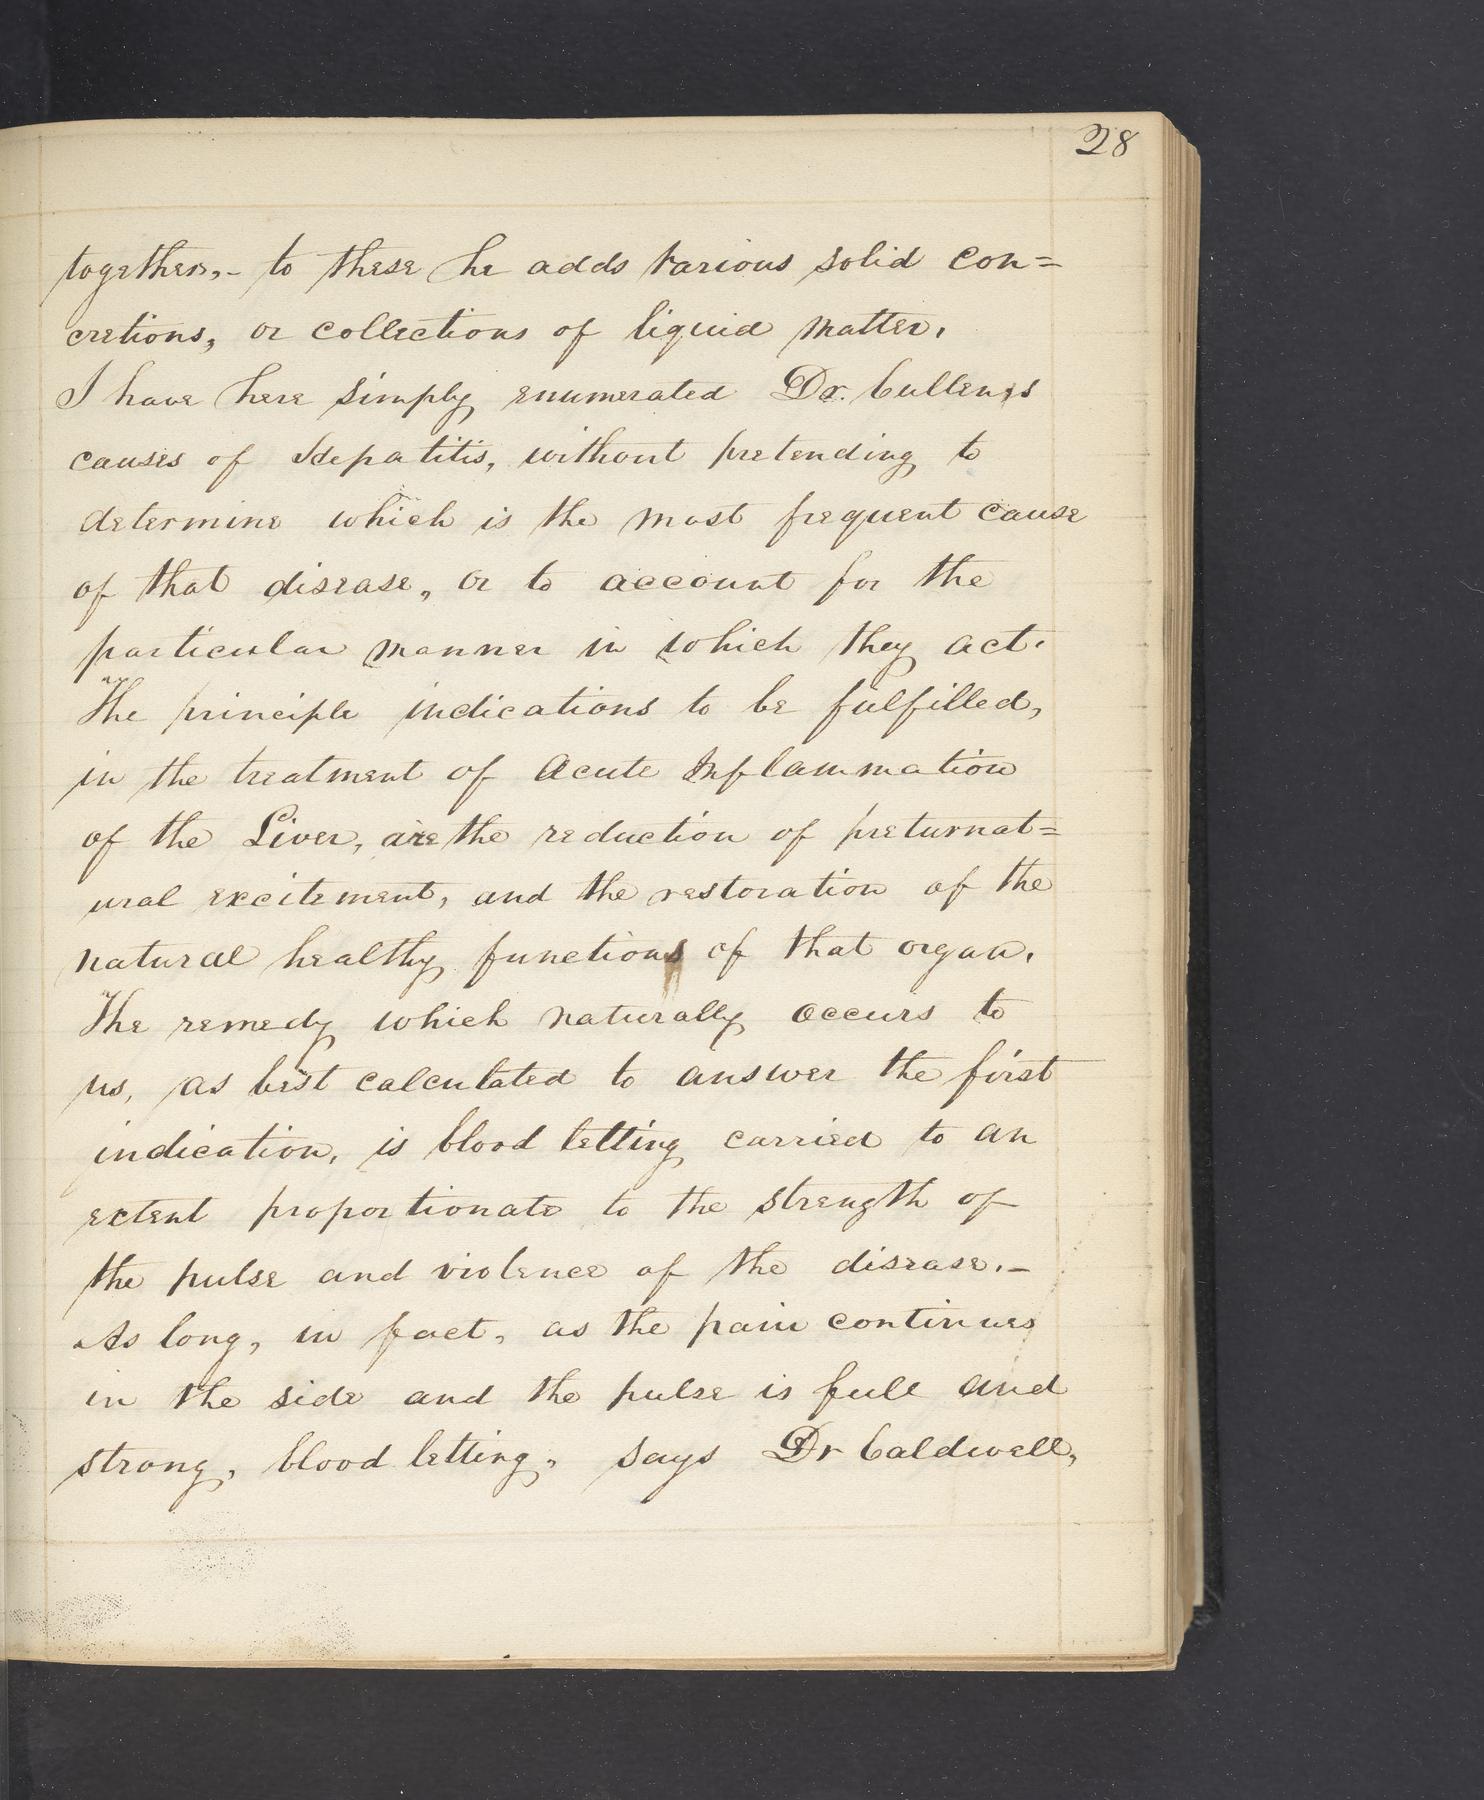 28
together,- to these he adds various solid con=
cretions, or collections of liquid matter.
I have here simply enumerated Dr. Cullen,s
causes of Hepatitis, without pretending to
determine which is the most frequent cause
of that disease, or to account for the
particular manner in which they act.
The principle indications to be fulfilled,
in the treatment of Acute Inflammation
of the Liver, are the reduction of preturnat=
ural excitement, and the restoration of the
natural healthy functions of that organ.
The remedy which naturally occurs to
us, as best calculated to answer the first
indication, is blood letting carried to an
extent proportionate to the strength of
the pulse and violence of the disease.-
As long, in fact, as the pain continues
in the side and the pulse is full and
strong, blood letting, says Dr Caldwell,